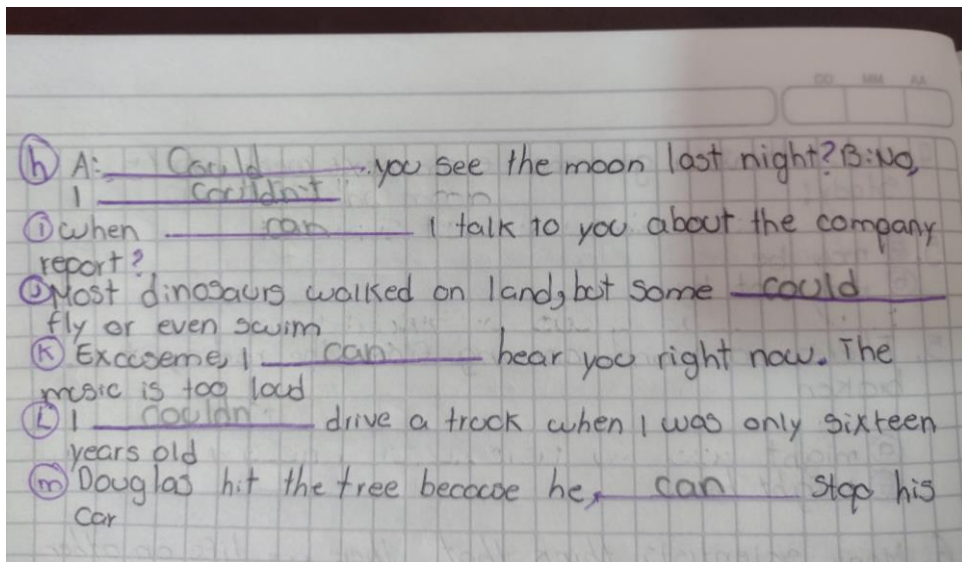 DD MM AA
h A: Could you see the moon last night? B: No,
I couldn't
i when can I talk to you about the company
report?
J Most dinosaurs walked on land, but some could
fly or even swim
K Excuseme, I can hear you right now. The
music is too loud
L I couldn drive a truck when I was only sixteen
years old
m Douglas hit the tree becouse he, can stop his
car